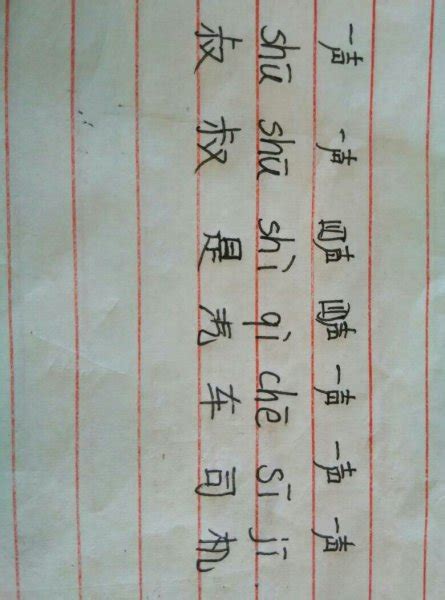 一声 一声 四声 四声 一声 一声 一声
shū shū shì qì chē sī jī
叔 叔 是 汽 车 司 机